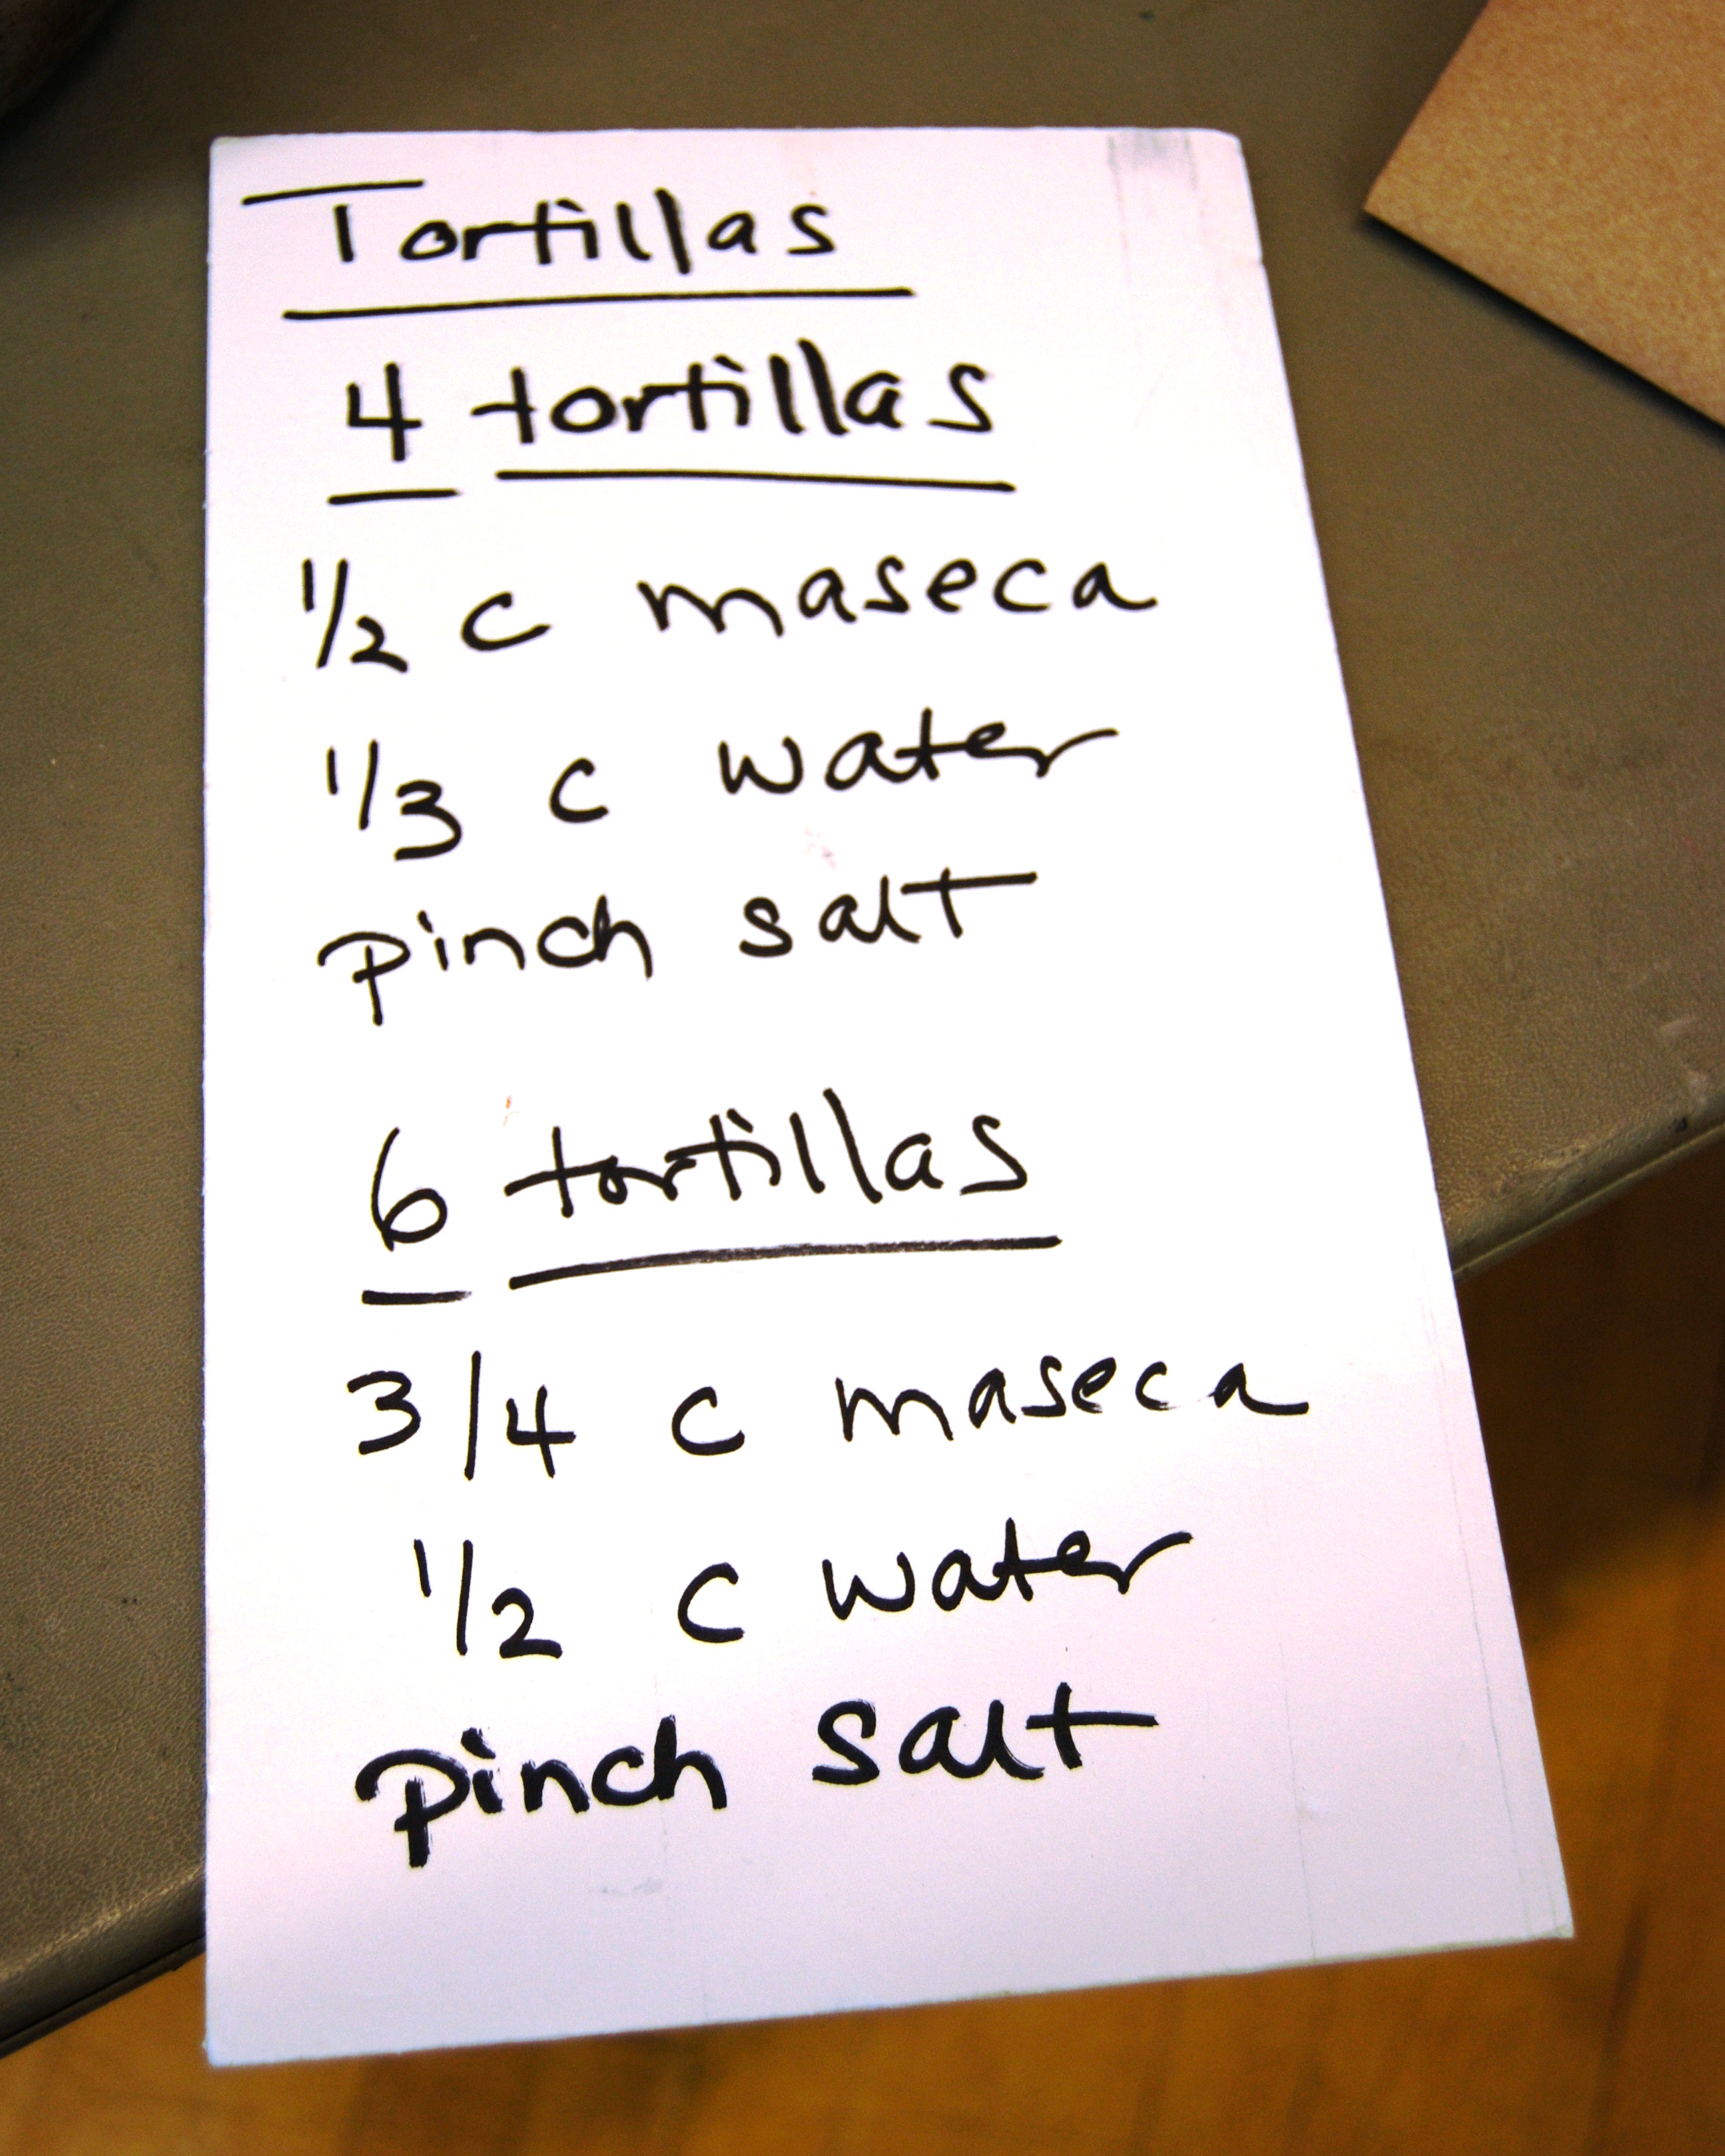 Tortillas
4 tortillas
1/2 c maseca
1/3 c water
pinch salt
6 tortillas
3/4 c maseca
1/2 c water
pinch salt